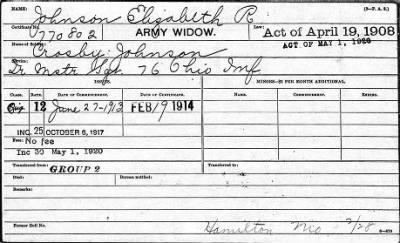 NAME: Johnson Elizabeth R (3-P. A. S.)
Certificate No. 770802 ARMY WIDOW. Law: Act of April 19, 1908
ACT OF MAY 1, 1920
Name of Soldier: Crosby Johnson
Qr Mstr Sgt. 76 Ohio Inf
MINORS—$2 PER MONTH ADDITIONAL.
CLASS. RATE. DATE OF COMMENCEMENT. DATE OF CERTIFICATE. DATE OF COMMENCEMENT.
Orig 12 June 27-1913 FEB 19 1914
INC. 25 OCTOBER 6, 1917
Fee: No fee
Inc 30 May 1, 1920
Transferred from: GROUP 2 Transferred to:
Died: Bureau notified:
Remarks:
Former Roll No. Hamilton Mo 2/28